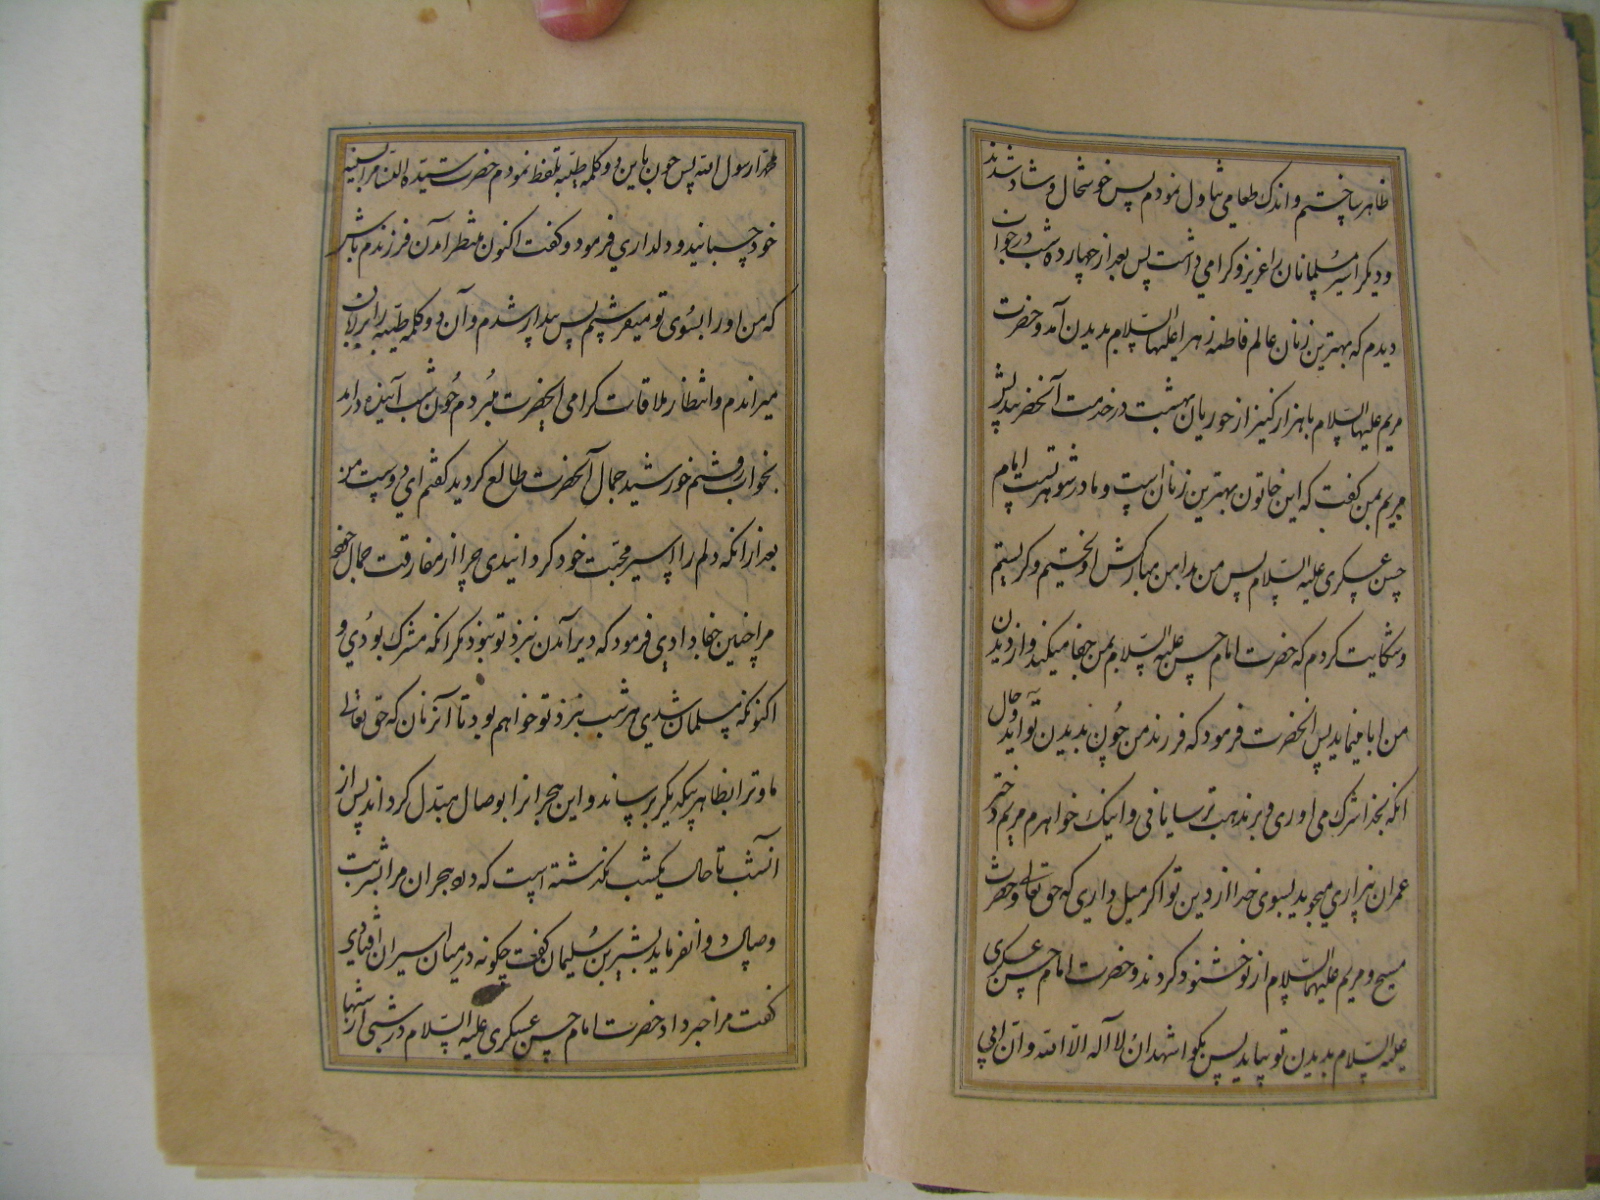 ظاهر ساختم و اندک طعامی تناول نمودم پس خوشحال و شاد شدند
و دیگر اسیر مسلمانان را عزیز و گرامی داشت پس بعد از چهارده شب در خواب
دیدم که بهترین زنان عالم فاطمه زهرا علیها السلام بدیدن آمد و حضرت
مریم علیها السلام با هزار کنیز از حوریان بهشت در خدمت آنحضرتند پس
مریم بمن گفت که این خاتون بهترین زنان است و مادر شوهر تست امام
حسن عسکری علیه السلام پس من بدامن مبارکش آویختم و گریستم
و شکایت کردم که حضرت امام حسن علیه السلام بمن جفا میکند و از دیدن
من ابا مینماید پس آنحضرت فرمود که فرزند من چون بدیدن تو آید و حال
آنکه بخدا شرک می آوری و بر مذهب ترسایانی و اینک خواهرم مریم دختر
عمران بیزاری میجوید بسوی خدا از دین تو اگر میل داری که حق تعالی و حضرت
مسیح و مریم علیهما السلام از تو خشنود گردند و حضرت امام حسن عسکری
علیه السلام بدیدن تو بیاید پس بگو اشهد ان لا اله الا الله و ان ابی
محمدا رسول الله پس چون باین دو کلمه طیبه تلفظ نمودم حضرت سیدة النسا مرا بسینه
خود چسبانید و دلداری فرمود و گفت اکنون منتظر آمدن فرزندم باش
که من او را بسوی تو میفرستم پس بیدار شدم و آن دو کلمه طیبه را بر زبان
میراندم و انتظار ملاقات گرامی آنحضرت میبردم چون شب آینده درآمد
بخواب رفتم خورشید جمال آنحضرت طالع گردید گفتم ای دوست من
بعد از آنکه دلم را اسیر محبت خود گردانیدی چرا از مفارقت جمال خود
مرا چنین جفا دادی فرمود که دیر آمدن نبزد تو نبود مگر آنکه مشرک بودی و
اکنونکه مسلمان شدی هر شب بنزد تو خواهم بود تا آنزمان که حق تعالی
ما و ترا بظاهر بیکدیگر برساند و این هجرانرا بوصال مبدل گرداند پس از
آنشب تا حال یکشب نگذشته است که درد هجران مرا بشربت
وصال دوا نفرماید بشیر بن سلیمان گفت چگونه در میان اسیران افتادی
گفت مرا خبر داد حضرت امام حسن عسکری علیه السلام در شبی از شبها